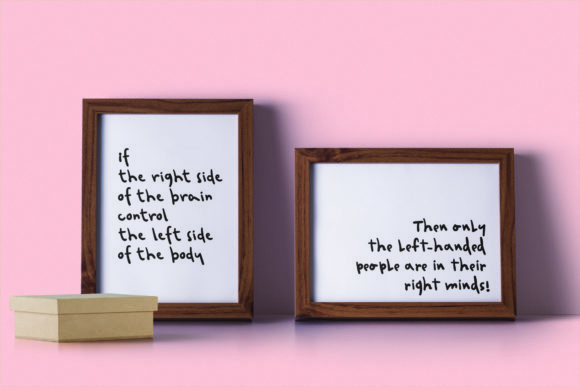 If
the right side
of the brain
control
the left side
of the body
Then only
the left-handed
people are in their
right minds!